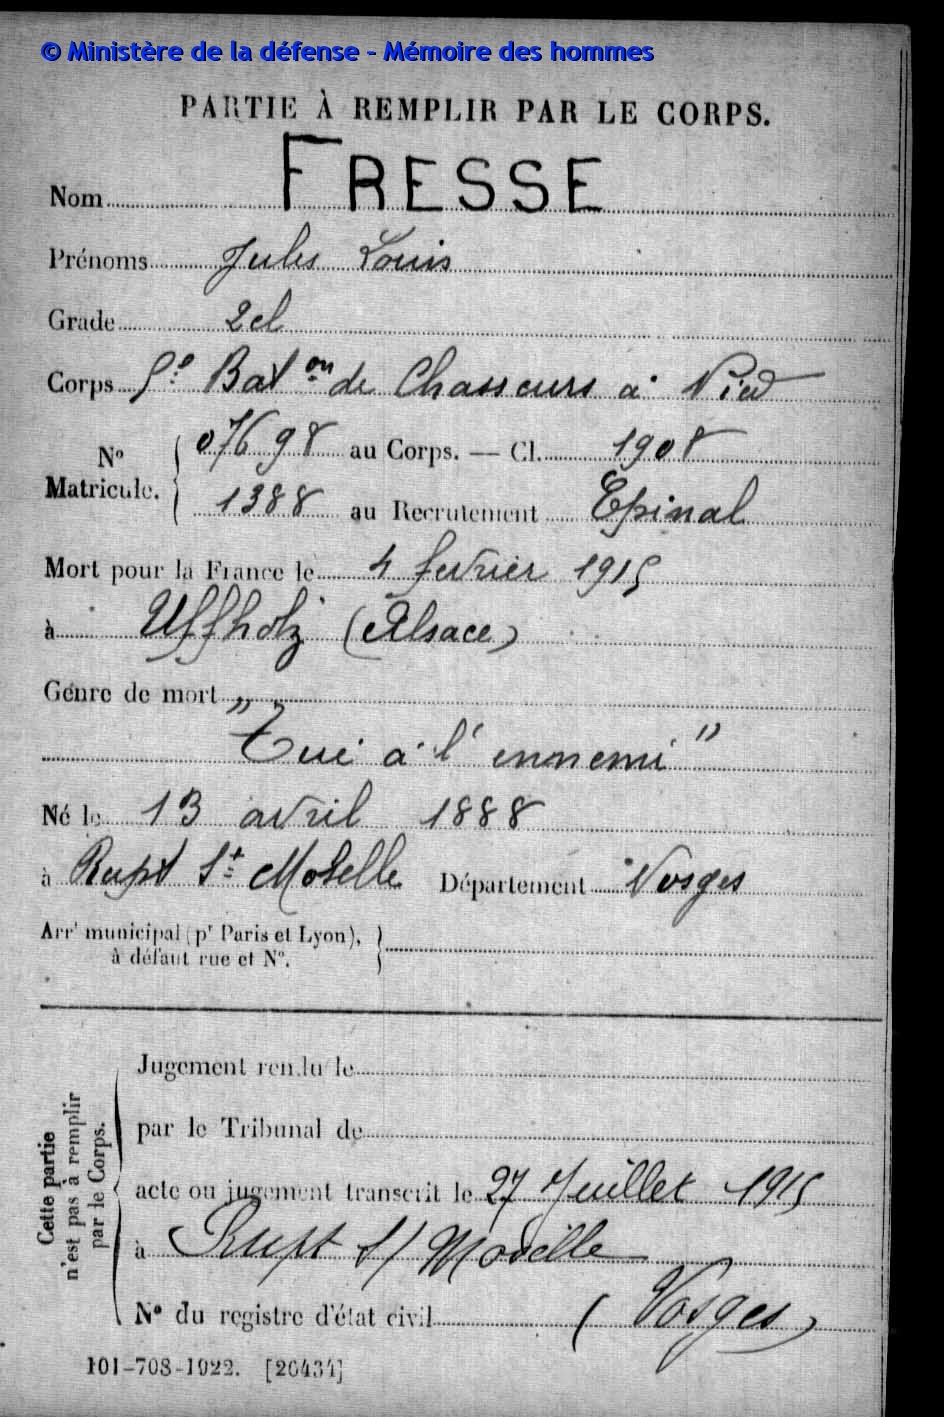 © Ministère de la défense - Mémoire des hommes
PARTIE À REMPLIR PAR LE CORPS.
Nom FRESSE
Prénoms Jules Louis
Grade 2 cl
Corps 5e Baton de Chasseurs à Pied
No Matricule. 07698 au Corps. — Cl. 1908
1388 au Recrutement Epinal
Mort pour la France le 4 fevrier 1915
à Uffholz (Alsace)
Genre de mort
"Tué à l'ennemi"
Né le 13 avril 1888
à Rupt St Moselle Département Vosges
Arrt municipal (pr Paris et Lyon),
à défaut rue et N°.
Jugement rendu le
par le Tribunal de
acte ou jugement transcrit le 27 Juillet 1915
à Rupt s/ Moselle
N° du registre d'état civil (Vosges)
Cette partie
n'est pas à remplir
par le Corps.
101-708-1922. [26434]